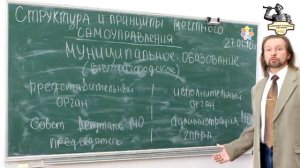 СТРУКТУРА И ПРИНЦИПЫ МЕСТНОГО
САМОУПРАВЛЕНИЯ
27.0
МУНИЦИПАЛЬНОЕ ОБРАЗОВАНИЕ
(внутригородское)
представительный исполнительный
орган орган
Совет депутатов МО администрация МО
председатель глава